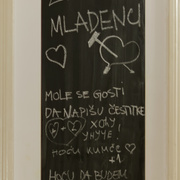 MLADENCI
MOLE SE GOSTI
DA NAPIŠU ČESTITKE
ХОЋУ
УНУЧЕ!
HOĆU KUMČE
+1
HOĆU DA BUDEM